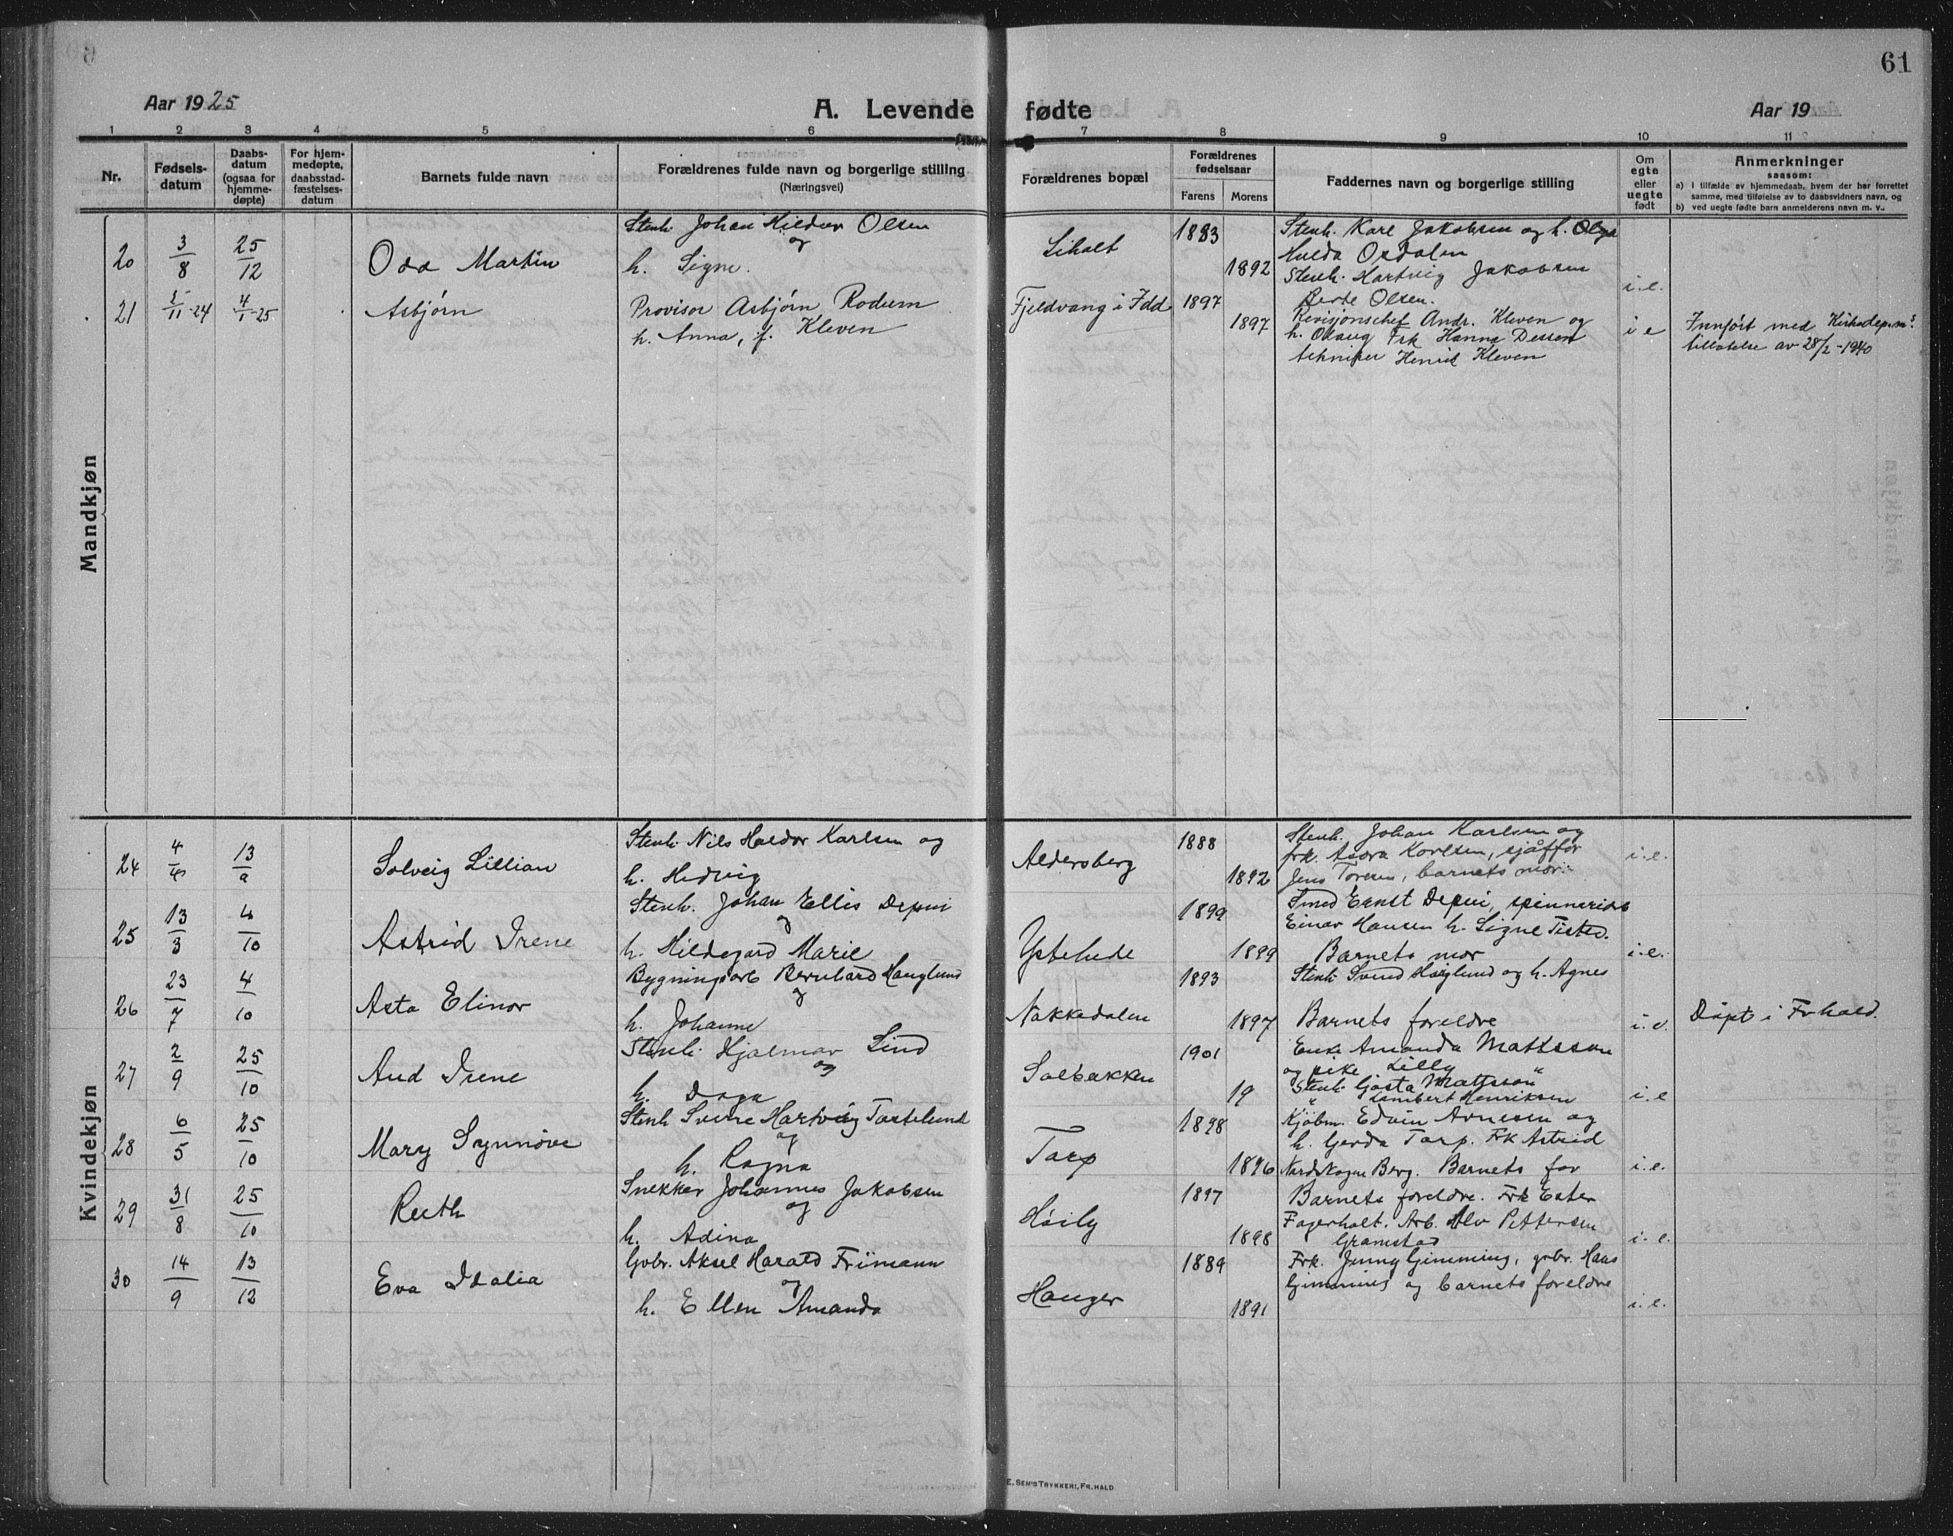 61
Aar 1925
A. Levende fødte
Aar 19
1 2 3 4 5 6 7 8 9 10 11
Nr.
Fødsels-
datum
Daabs-
datum
(ogsaa for
hjemme-
døpte)
For hjem-
medøpte,
daabsstad-
fæstelses-
datum
Barnets fulde navn
Forældrenes fulde navn og borgerlige stilling
(Næringsvei)
Forældrenes bopæl
Forældrenes
fødselsaar
Farens Morens
Faddernes navn og borgerlige stilling
Om
egte
eller
uegte
født
Anmerkninger
saasom:
a) i tilfælde av hjemmedaab, hvem der har forrettet
samme, med tilføielse av to daabsvidners navn, og
b) ved uegte fødte barn anmelderens navn m. v..
Mandkjøn
20 3/8 25/12 Odd Martin
Stenh. Johan Hilder Olsen
og
h. Signe.
Liholt
1883
1892
Stenh. Karl Jakobsen og h. Olga
Hulda Ordalen
Stenh. Hartvig Jakobsen
Berte Olsen.
i.e.
21 /11-24 4/1-25 Asbjørn
Provisor Asbjørn Rodum
h. Anna, f. Kleven
Fjeldvang i Idd
1897
1897
Revisjonschef Andr. Kleven og
h. Olaug Frk Hanna Dessen
tekniker Henrik Kleven
i e
Innført med Kirkedep.ms
tillatelse av 28/2-1940
Kvindekjøn
24 4/6 13/9 Solveig Lillian
Stenh Nils Haldor Karlsen og
h. Hedvig
Aldersberg
1888
1892
Stenh. Johan Karlsen og
frk. Asora Karlsen, sjåffør
Jens Toresen, barnets mor.
i.e.
25 13/3 4/10 Astrid Irene
Stenh. Johan Ellis Depui
og
h. Hildegard Marie
Ystehede
1899
1899
Smed Ernst Depui, spinnerid
Einar Hansen h. Signe Tisted.
Barnets mor
i.e.
26 23/7 4/10 Asta Elinor
Bygningsarb Bernhard Hauglund
og
h. Johanne
Nakkedalen
1893
1897
Stenh Svend Hauglund og h. Agnes
Barnets foreldre
i.e.
Døpt i Frhald.
27 2/9 25/10 Aud Irene
Stenh. Hjalmar Lind
og
h. Daga
Solbakken
1901
19
Enke Amanda Mattsson
og pike Lilly "
Stenh Gøsta Mattsson
" Lambert Henriksen
i e
28 6/5 25/10 Mary Synnøve
Stenh Sverre Hartvig Tostelund
og
h. Ragna
Torp
1898
1896
Kjøbm. Edvin Arnesen og
h. Gerda Torp. Frk Astrid
Nordskogen Berg. Barnets far
i.e.
29 31/8 25/10 Ruth
Snekker Johannes Jakobsen
og
h. Adina
Høily
1897
1898
Barnets foreldre. Frk Ester
Fagerholt. Arb. Alv Pettersen
Gramstad
i. e.
30 14/9 13/12 Eva Idalia
Gvbr. Aksel Harald Frimann
og
h. Ellen Amanda
Hauger
1889
1891
Frk. Jenny Gimming, gvbr. Hans
Gimming og barnets foreldre
i. e.
E. SEM'S TRYKKERI, FR.HALD